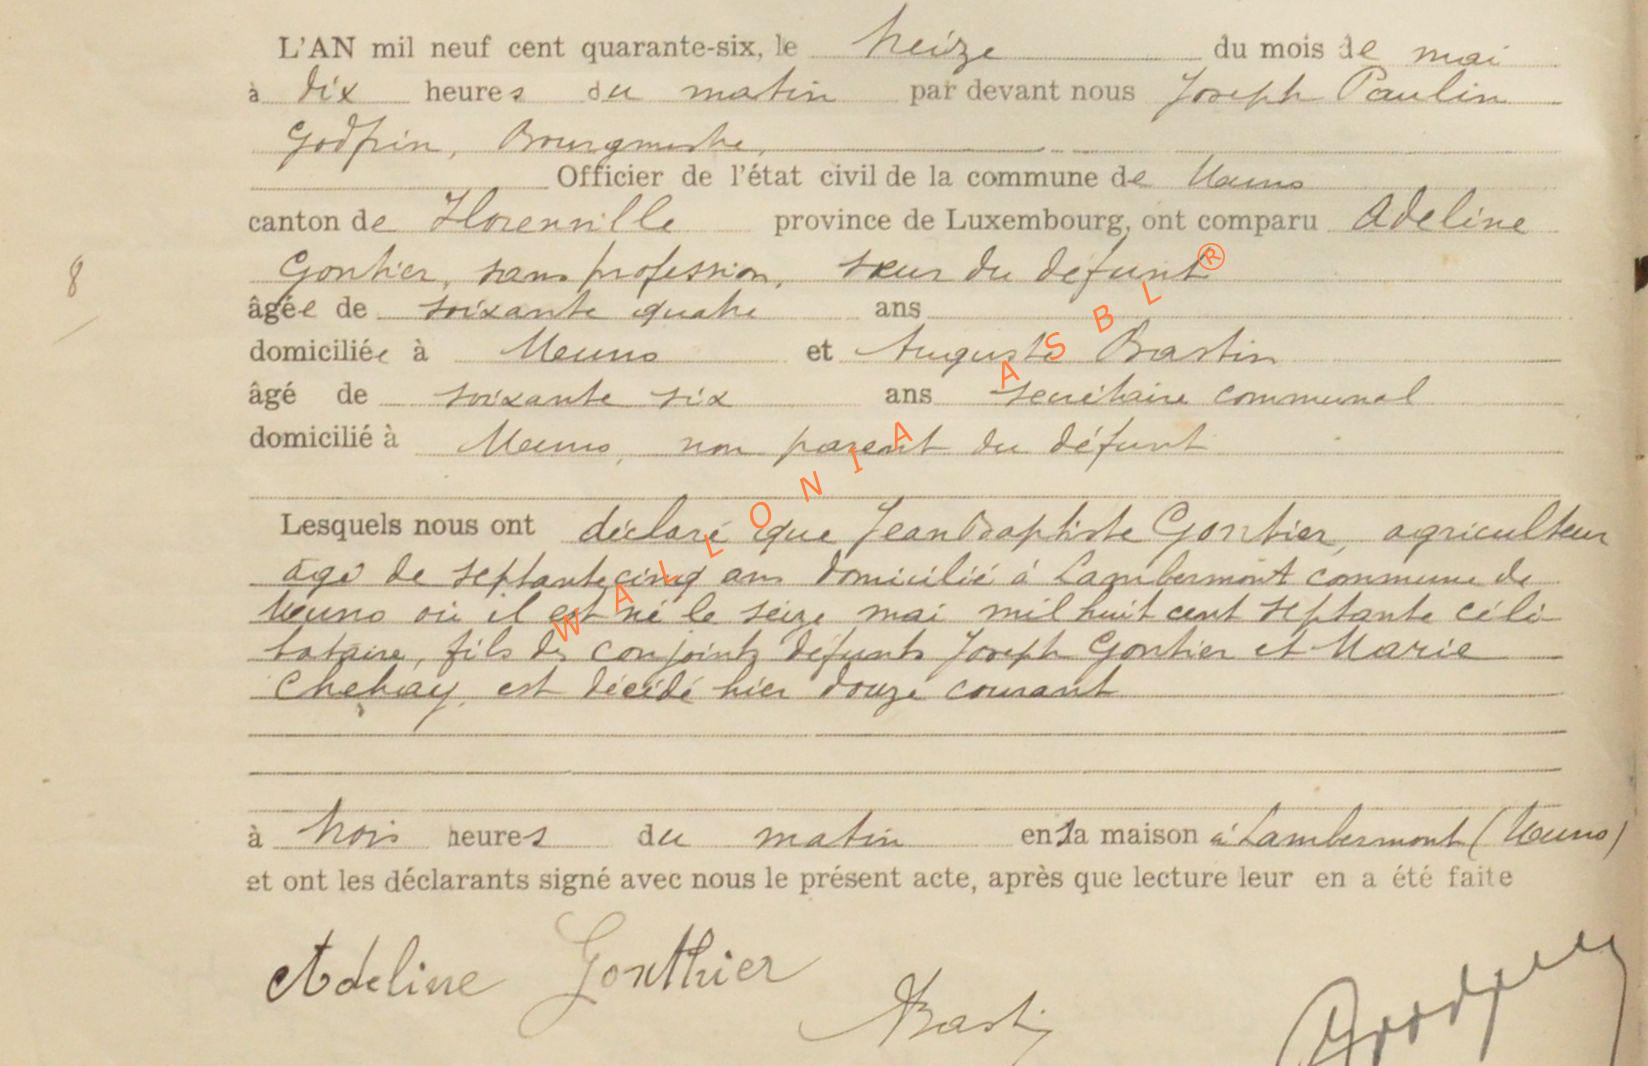 L'AN mil neuf cent quarante-six, le treize du mois de mai
à dix heures du matin par devant nous Joseph Paulin
Godfrin, Bourgmestre,
Officier de l'état civil de la commune de Muno
canton de Florenville province de Luxembourg, ont comparu Adeline
Gontier, sans profession, sœur du défunt
8
âgée de soixante quatre ans
domiciliée à Muno et Auguste Bastin
âgé de soixante six ans secrétaire communal
domicilié à Muno, non parent du défunt
Lesquels nous ont déclaré que Jean Baptiste Gontier, agriculteur
âgé de septante cinq ans domicilié à Lambermont commune de
Muno où il est né le seize mai mil huit cent septante céli-
bataire, fils des conjoints défunts Joseph Gontier et Marie
Chehay, est décédé hier douze courant
à trois heures du matin en la maison à Lambermont (Muno)
et ont les déclarants signé avec nous le présent acte, après que lecture leur en a été faite
Adeline Gonthier
ABastin
WALLONIA ASBL ®